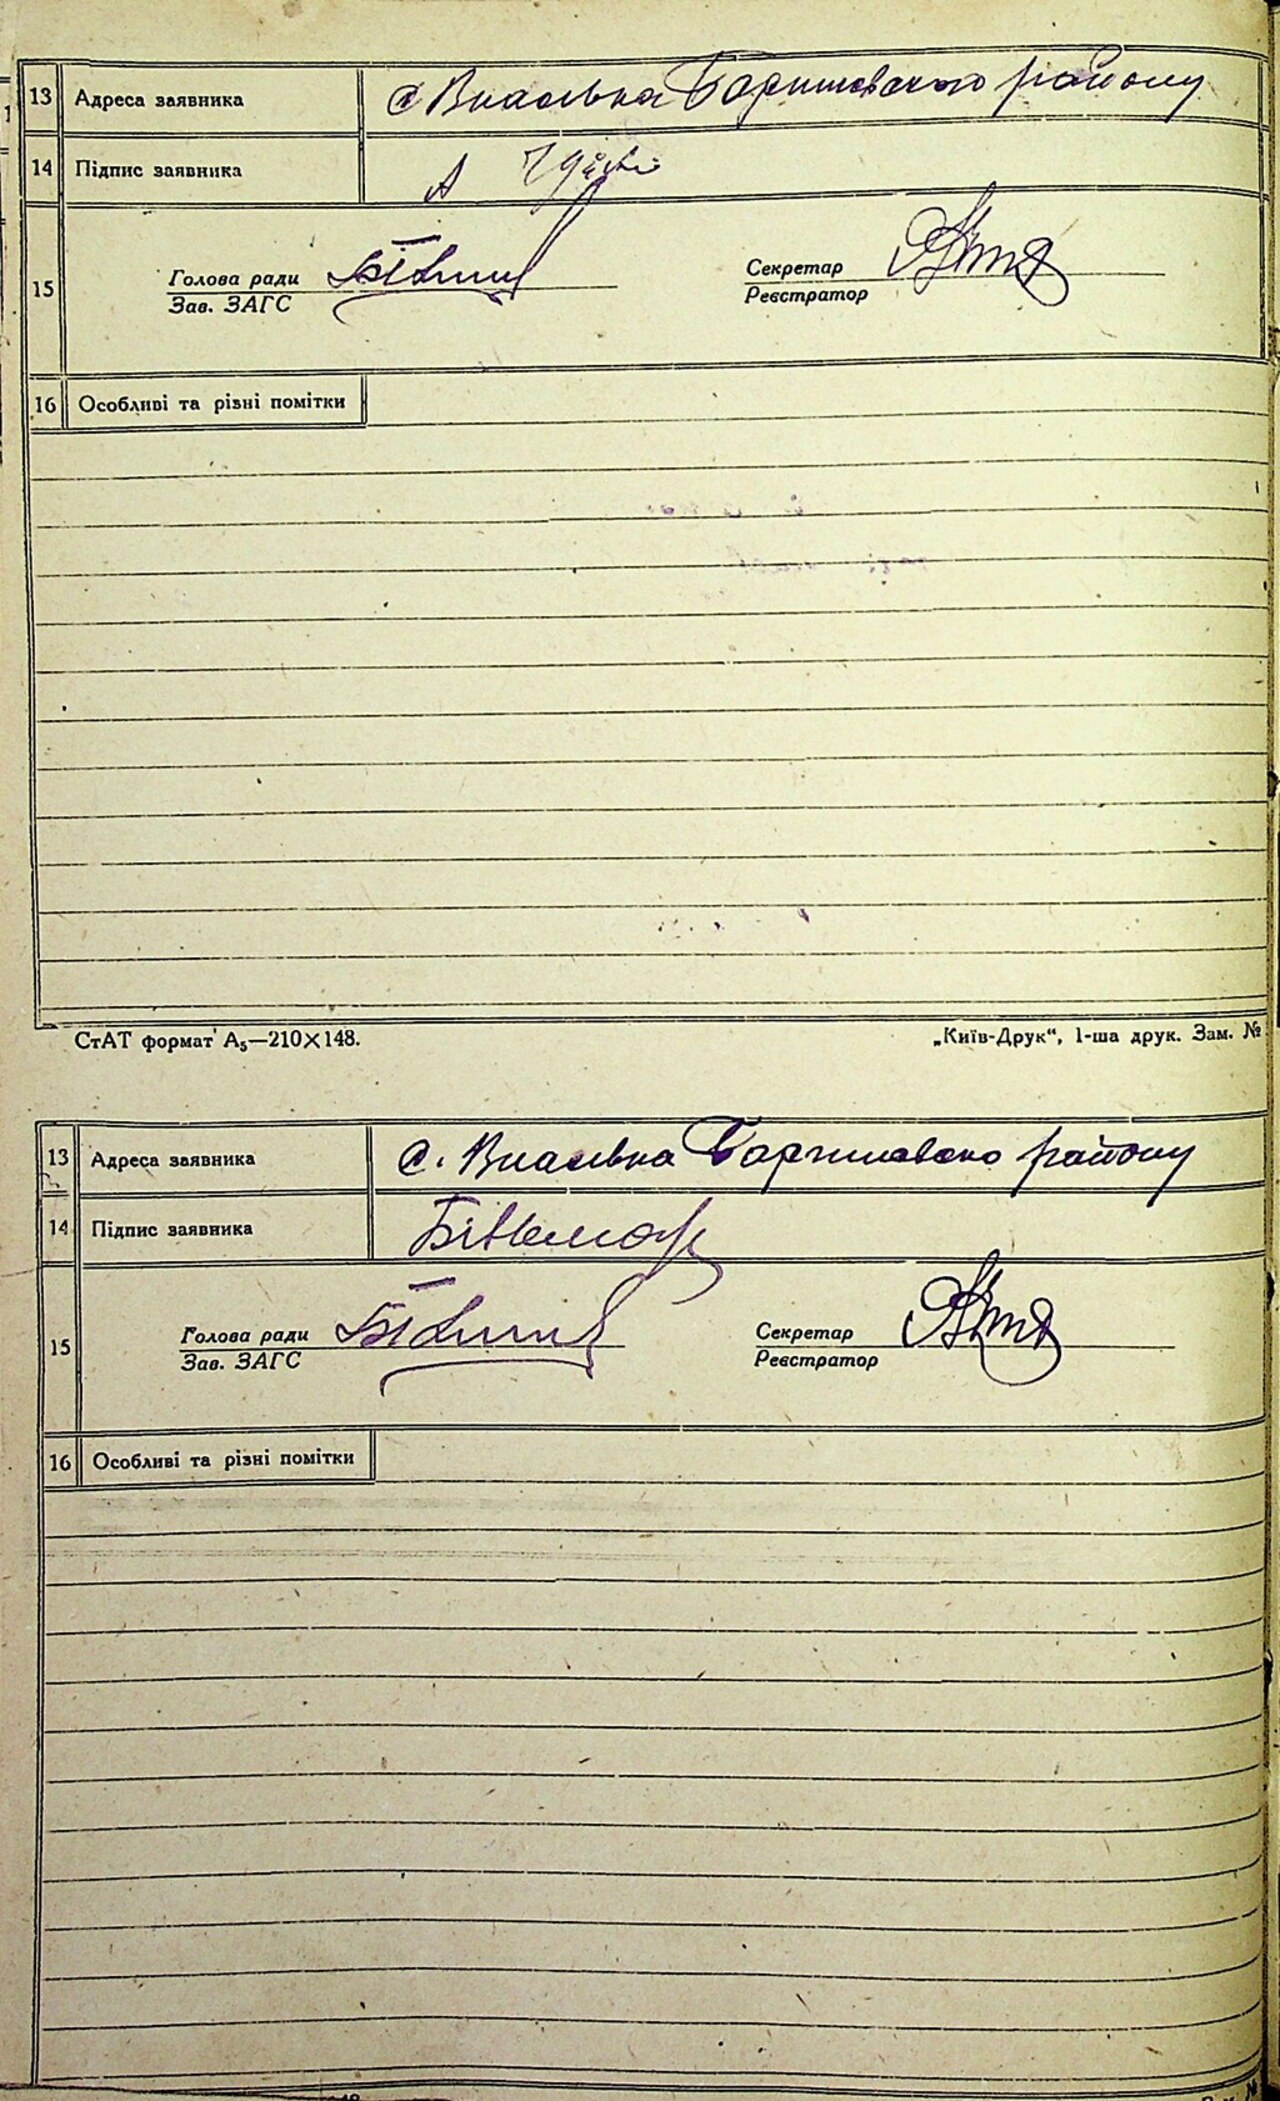 13 Адреса заявника с Власівка Баришевського району
14 Підпис заявника А
15 Голова ради Секретар
Зав. ЗАГС Реєстратор
16 Особливі та різні помітки
СтАТ формат А₅—210×148. „Київ-Друк“, 1-ша друк. Зам. №
13 Адреса заявника с. Власівка Баришевсько району
14 Підпис заявника
15 Голова ради Секретар
Зав. ЗАГС Реєстратор
16 Особливі та різні помітки